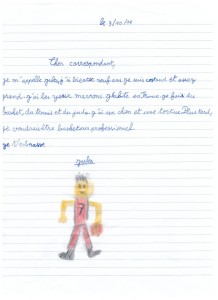 le 3/10/
Cher correspondant,
je m'appelle jules, j'ai bientôt neuf ans je suis costaud et assez
grand. j'ai les yeux marrons. j'habite en France. je fais du
basket, du tennis et du judo. j'ai un chien et une tortue. Plus tard,
je voudrais être basketteur professionnel.
je t'embrasse
jules
7